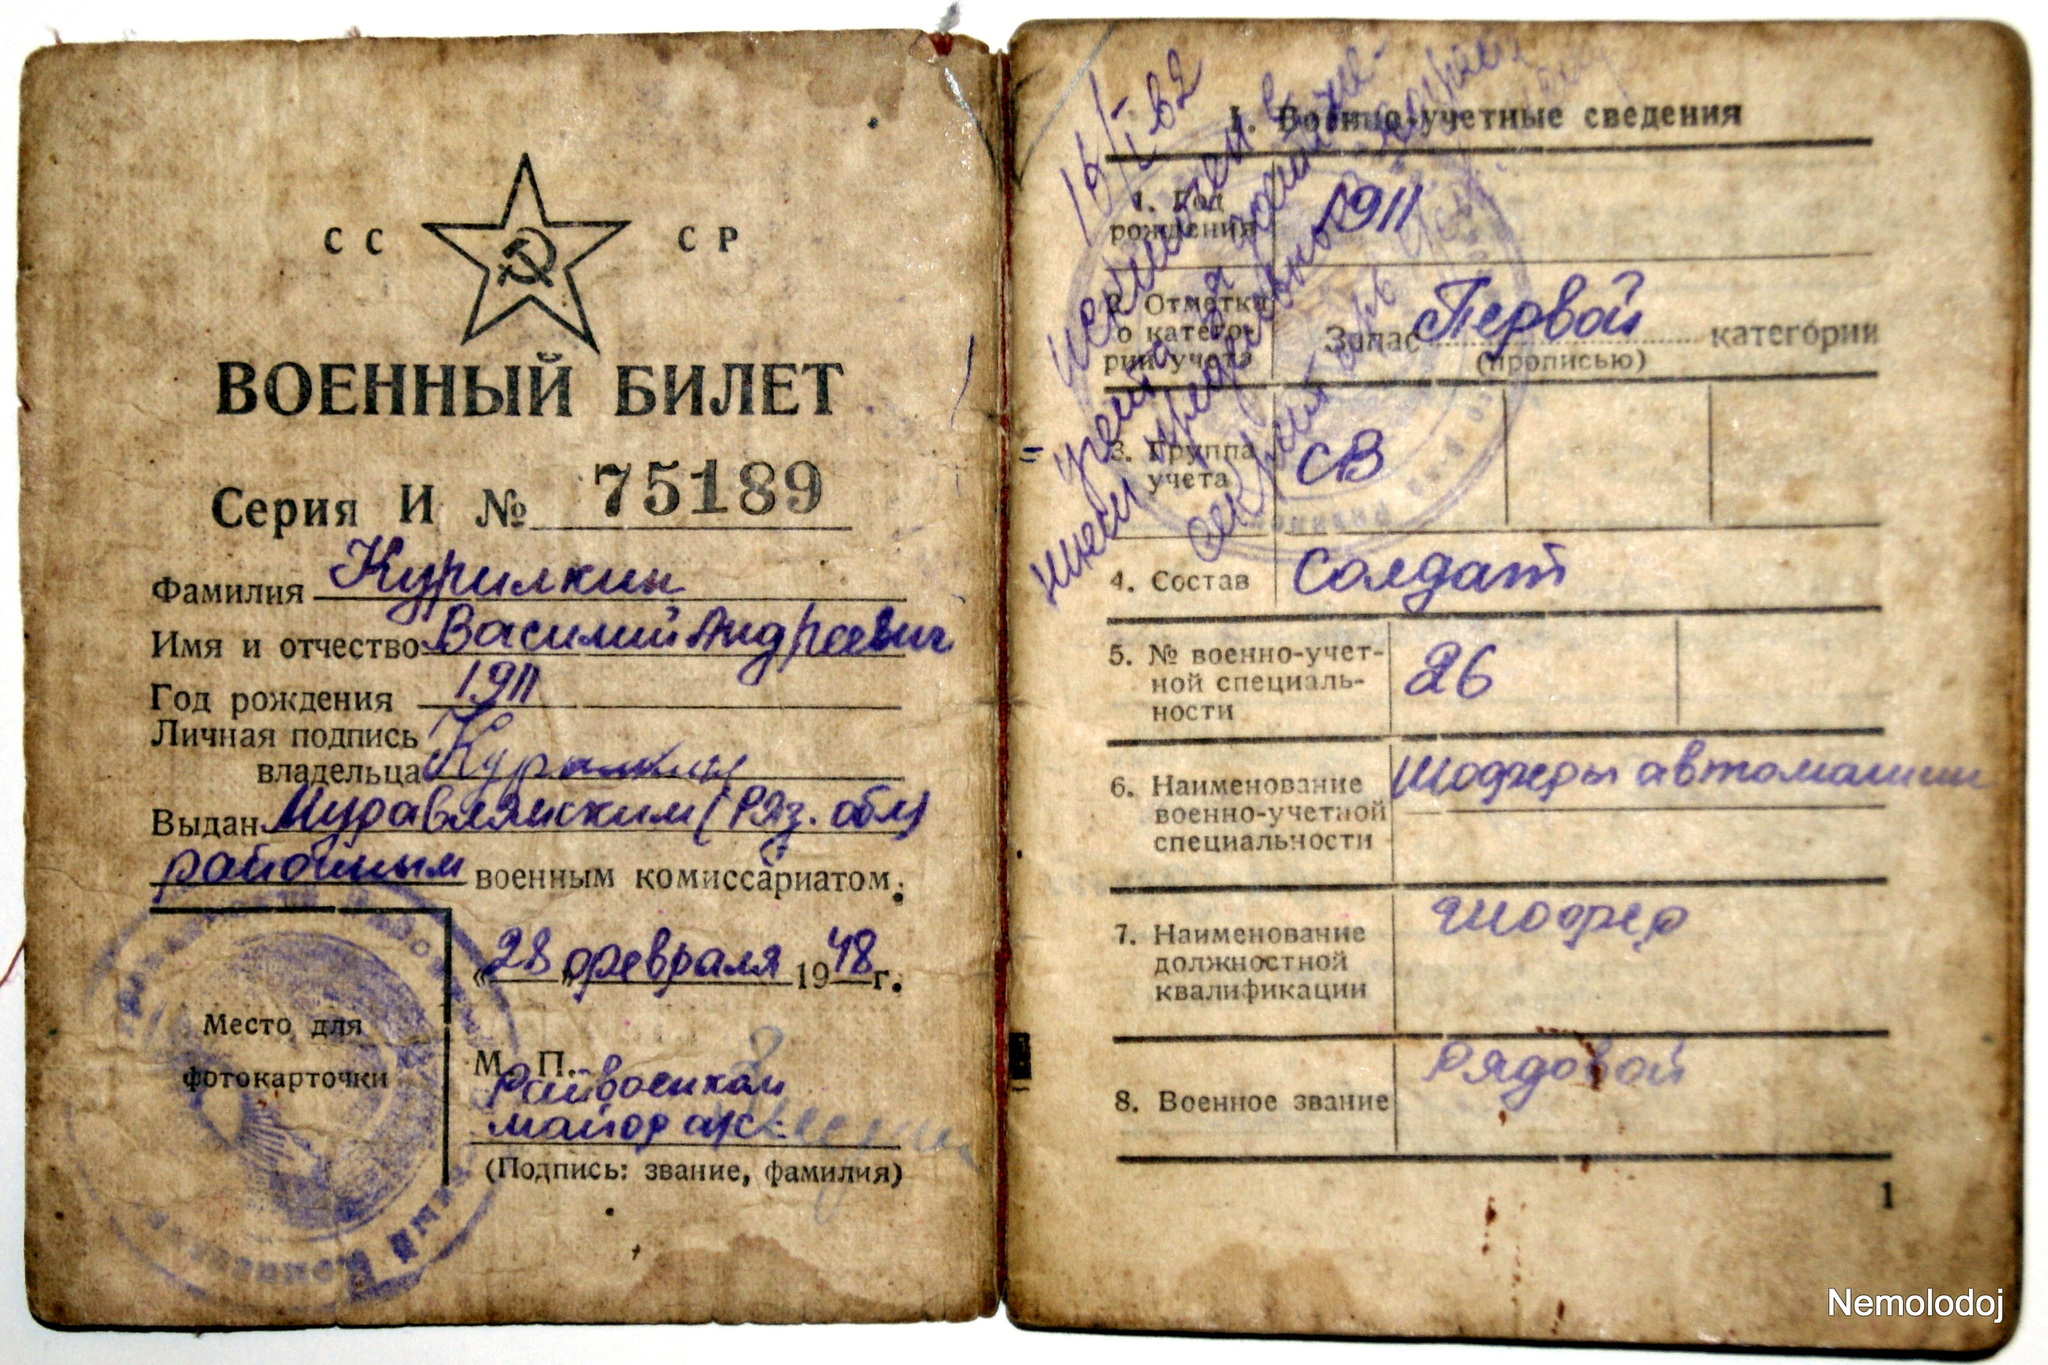 СС СР
ВОЕННЫЙ БИЛЕТ
Серия И № 75189
Фамилия Курилкин
Имя и отчество Василий Андреевич
Год рождения 1911
Личная подпись
владельца Курилкин
Выдан Муравлянским (Ряз. обл)
районным военным комиссариатом.
«28» февраля 1948 г.
Место для
фотокарточки
М. П.
Райвоенком
майор а/с
(Подпись: звание, фамилия)
1. Военно-учетные сведения
1. Год
рождения 1911
2. Отметка
о катего-
рии учета
Запас Первой категории
(прописью)
3. Группа
учета СВ
4. Состав Солдат
5. № военно-учет-
ной специаль-
ности 26
6. Наименование
военно-учетной
специальности Шоферы автомашин
7. Наименование
должностной
квалификации Шофер
8. Военное звание Рядовой
1
Nemolodoj